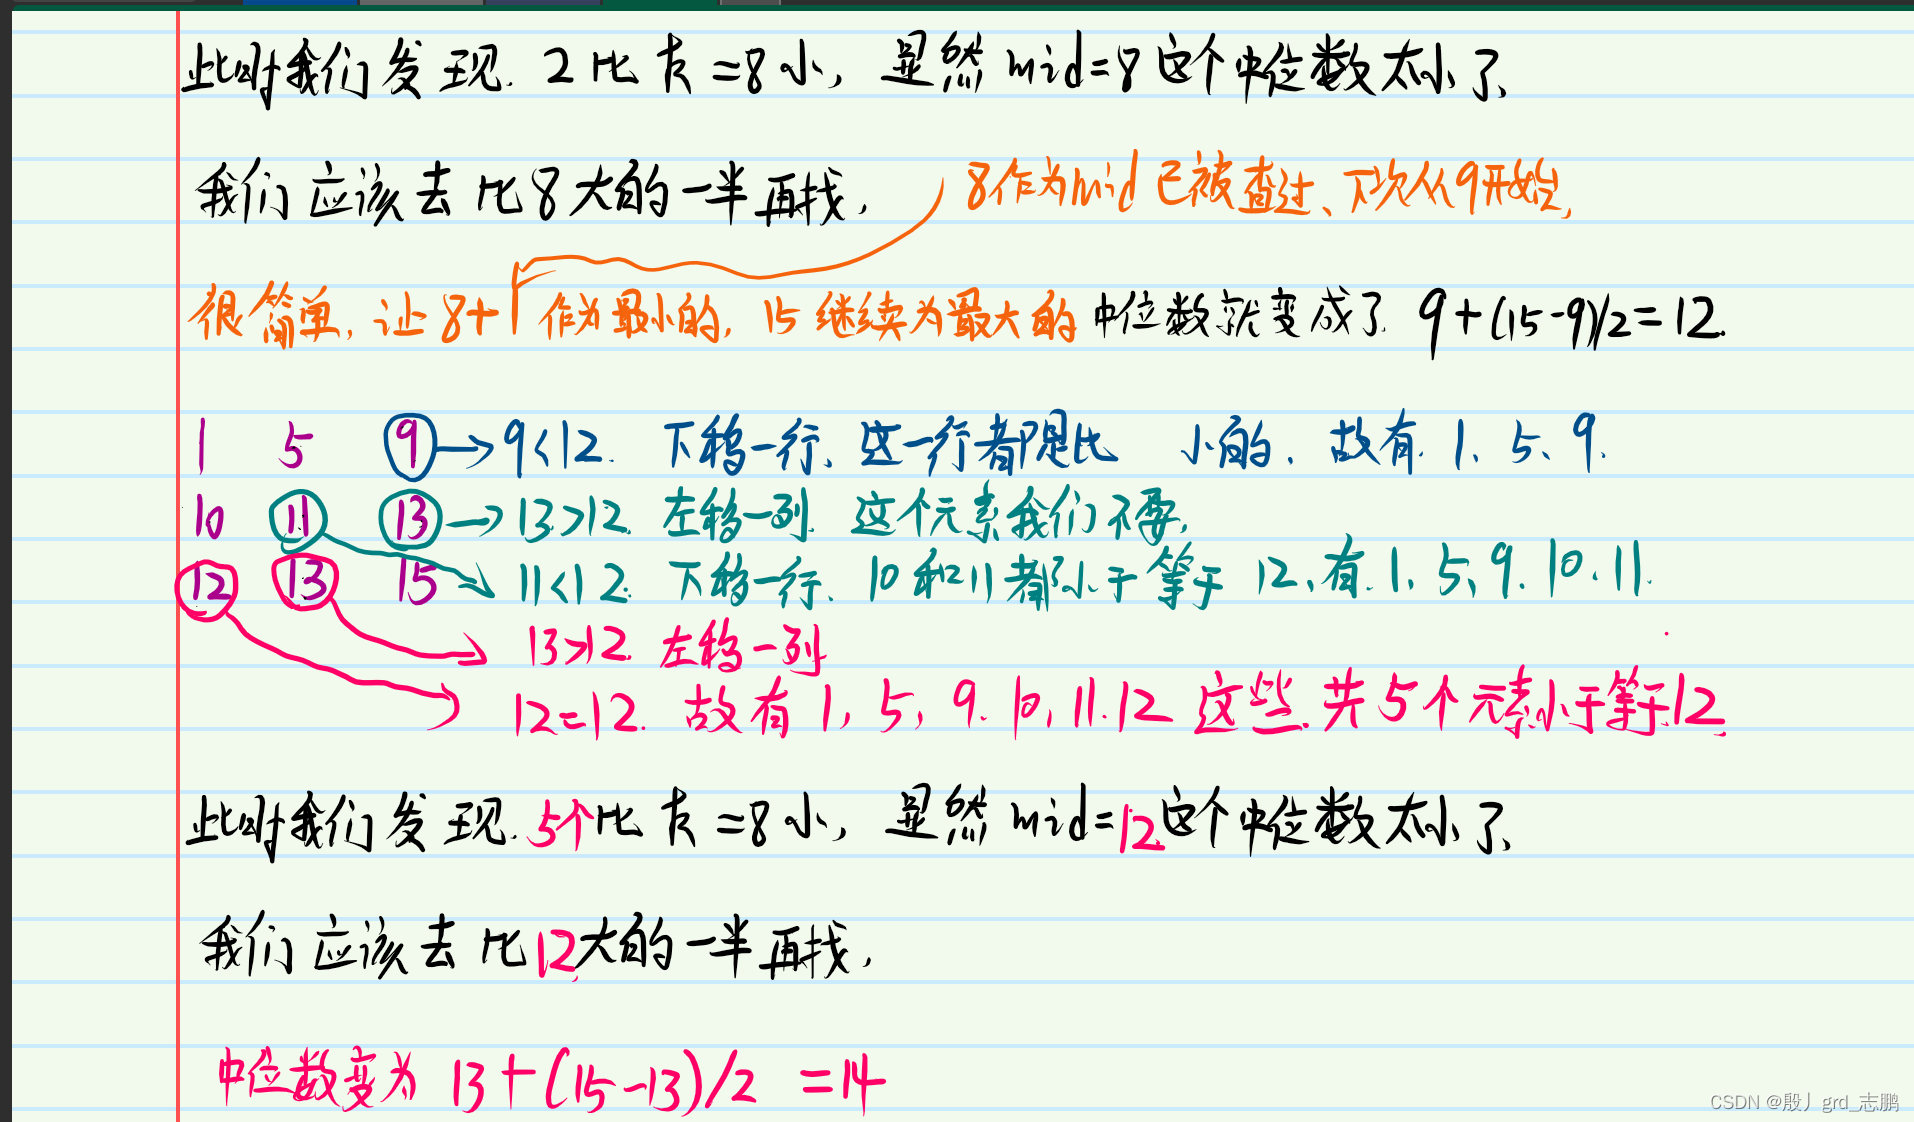 此时我们发现. 2比 k =8小, 显然 mid=8 这个中位数太小了、
我们应该去比8大的一半再找, 8作为mid已被查过、下次从9开始,
很简单, 让8+1作为最小的, 15继续为最大的 中位数就变成了 9+(15-9)/2=12.
1 5 9 → 9<12. 下移一行、这一行都是比 小的、故有 1、5、9.
10 11 13 → 13>12. 左移一列 这个元素我们不要,
12 13 15 11<12. 下移一行、10和11都小于等于 12、有.1、5、9.10.11.
13>12. 左移一列
12=12. 故有1, 5, 9. 10, 11.12 这些. 共5个元素小于等于12.
此时我们发现. 5个比 k =8小, 显然 mid=12.这个中位数太小了、
我们应该去比12大的一半再找,
中位数变为 13+(15-13)/2 =14
CSDN @殷丿grd_志鹏